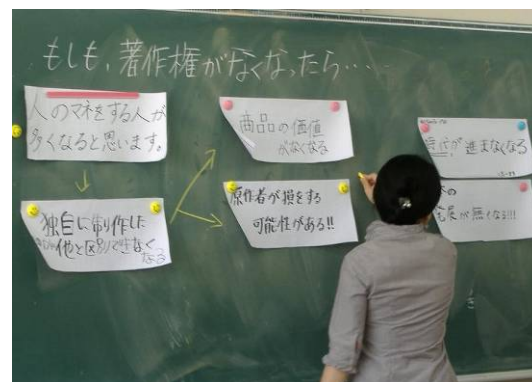 もしも、著作権がなくなったら……
人のマネをする人が
多くなると思います。
独自に制作した
他と区別できなく
なる
商品の価値
がなくなる
原作者が損をする
可能性がある!!
が進まなくなる
の
が無くなる!!!